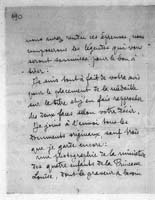 690
nous aurez rendu ces épreuves, nous
composerons les légendes qui vous
seront soumises pour le bon à
tirer.
Je suis tout à fait de votre avis
pour le placement de la médaille
sur le titre et j'en fais reproduire
les deux faces selon votre désir.
Je joins à l'envoi tous les
documents originaux sauf trois
que je garde encore:
une photographie de la miniature
des quatre enfants de la Princesse
Louise, dont le graveur a besoin